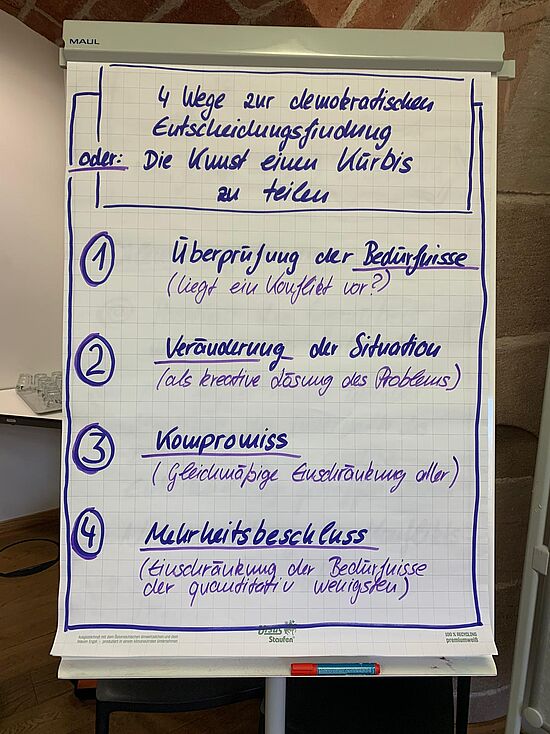 MAUL
4 Wege zur demokratischen
Entscheidungsfindung
oder: Die Kunst einen Kürbis
zu teilen
1 Überprüfung der Bedürfnisse
(liegt ein Konflikt vor?)
2 Veränderung der Situation
(als kreative Lösung des Problems)
3 Kompromiss
(Gleichmäßige Einschränkung aller)
4 Mehrheitsbeschluss
(Einschränkung der Bedürfnisse
der quantitativ wenigsten)
Ursus
Staufen
100 % RECYCLING
premiumweiß